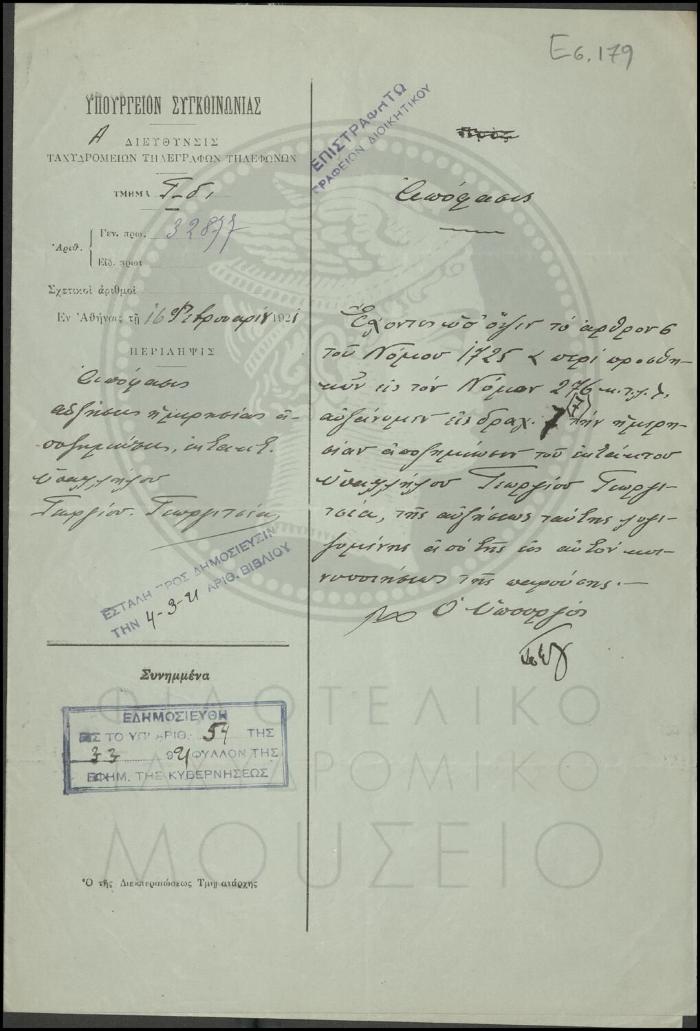 Ε6.179
ΥΠΟΥΡΓΕΙΟΝ ΣΥΓΚΟΙΝΩΝΙΑΣ
Α
ΔΙΕΥΘΥΝΣΙΣ
ΤΑΧΥΔΡΟΜΕΙΩΝ ΤΗΛΕΓΡΑΦΩΝ ΤΗΛΕΦΩΝΩΝ
ΤΜΗΜΑ
Ἀριθ.
Γεν. πρω. 32877
Εἰδ. πρωτ
Σχετικοὶ ἀριθμοὶ
Ἐν Ἀθήναις τῇ 16 Φεβρουαρίου 1921
ΠΕΡΙΛΗΨΙΣ
Ἀπόφασις
αὐξήσεως ἡμερησίας ἀ-
ποζημιώσεως, ἐκτάκτ.
ὑπαλλήλου
Γεωργίου Γεωργιτσέα
ΕΣΤΑΛΗ ΠΡΟΣ ΔΗΜΟΣΙΕΥΣΙΝ
ΤΗΝ 4-3-21 ΑΡΙΘ. ΒΙΒΛΙΟΥ
Συνημμένα
ΕΔΗΜΟΣΙΕΥΘΗ
ΕΙΣ ΤΟ ΥΠ' ΑΡΙΘ. 54 ΤΗΣ
921 ΦΥΛΛΟΝ ΤΗΣ
ΕΦΗΜ. ΤΗΣ ΚΥΒΕΡΝΗΣΕΩΣ
Ὁ τῆς Διεκπεραιώσεως Τμηματάρχης
ΕΠΙΣΤΡΑΦΗΤΩ
ΓΡΑΦΕΙΟΝ ΔΙΟΙΚΗΤΙΚΟΥ
Πρὸς
Ἀπόφασις
Ἔχοντες ὑπ' ὄψιν τὸ ἄρθρον 6
τοῦ Νόμου 1725 περὶ προσθη-
κῶν εἰς τὸν Νόμον 276 κ.τ.λ.
αὐξάνομεν εἰς δραχ. 7 (7) τὴν ἡμερη-
σίαν ἀποζημίωσιν τοῦ ἐκτάκτου
ὑπαλλήλου Γεωργίου Γεωργι-
τσέα, τῆς αὐξήσεως ταύτης λογι-
ζομένης ἀπὸ τῆς εἰς αὐτὸν κοι-
νοποιήσεως τῆς παρούσης.—
Ὁ Ὑπουργὸς
ΦΙΛΟΤΕΛΙΚΟ
ΤΑΧΥΔΡΟΜΙΚΟ
ΜΟΥΣΕΙΟ